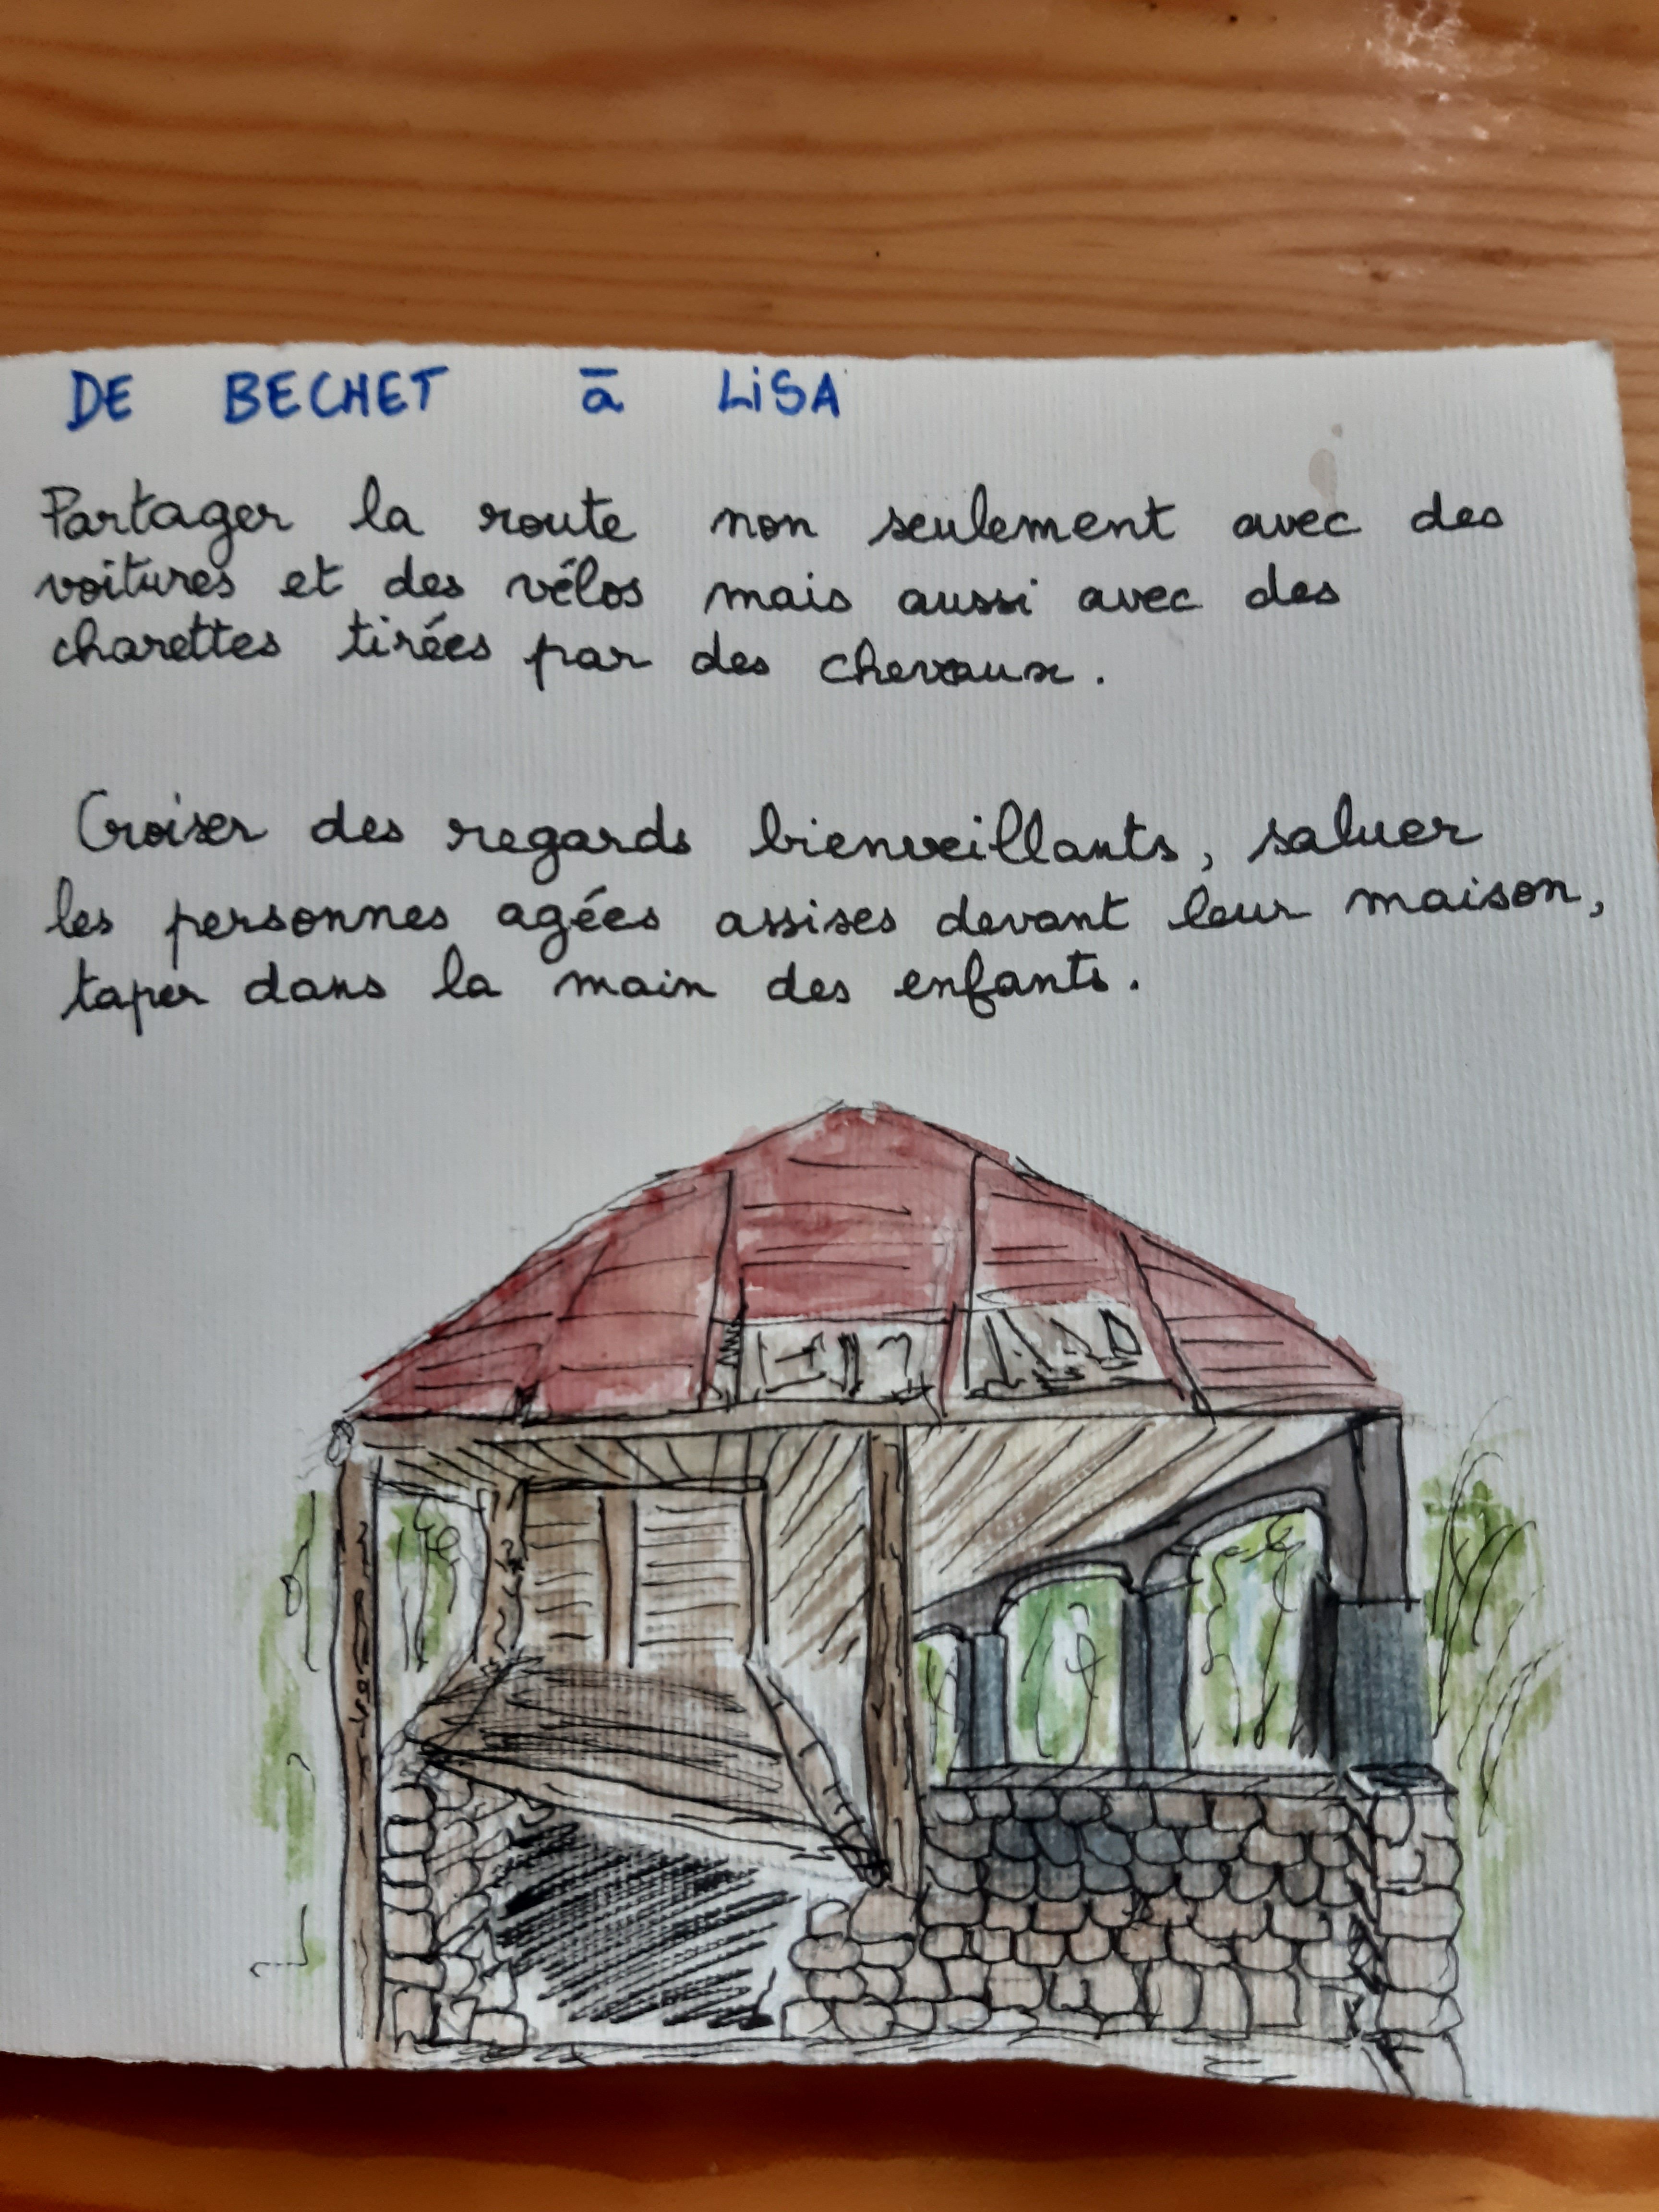 DE BECHET à LiSA
Partager la route non seulement avec des
voitures et des vélos mais aussi avec des
charettes tirées par des chevaux.
Croiser des regards bienveillants, saluer
les personnes agées assises devant leur maison,
taper dans la main des enfants.